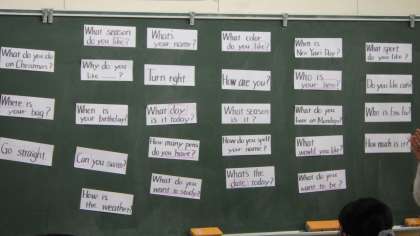 What do you do
on Christmas?
Where is
your bag?
Go straight
What season
do you like?
Why do you
like ____?
When is
your birthday?
Can you swim?
How is
the weather?
What's
your name?
Turn right
What day
is it today?
How many pens
do you have?
What do you
want to study?
What color
do you like?
How are you?
What season
is it?
How do you spell
your name?
What's the
date, today?
When is
New Year's Day?
Who is
What do you
have on Monday?
What
would you like?
What do you
want to be?
What sport
do you like?
Do you like
Who is
How much is it?